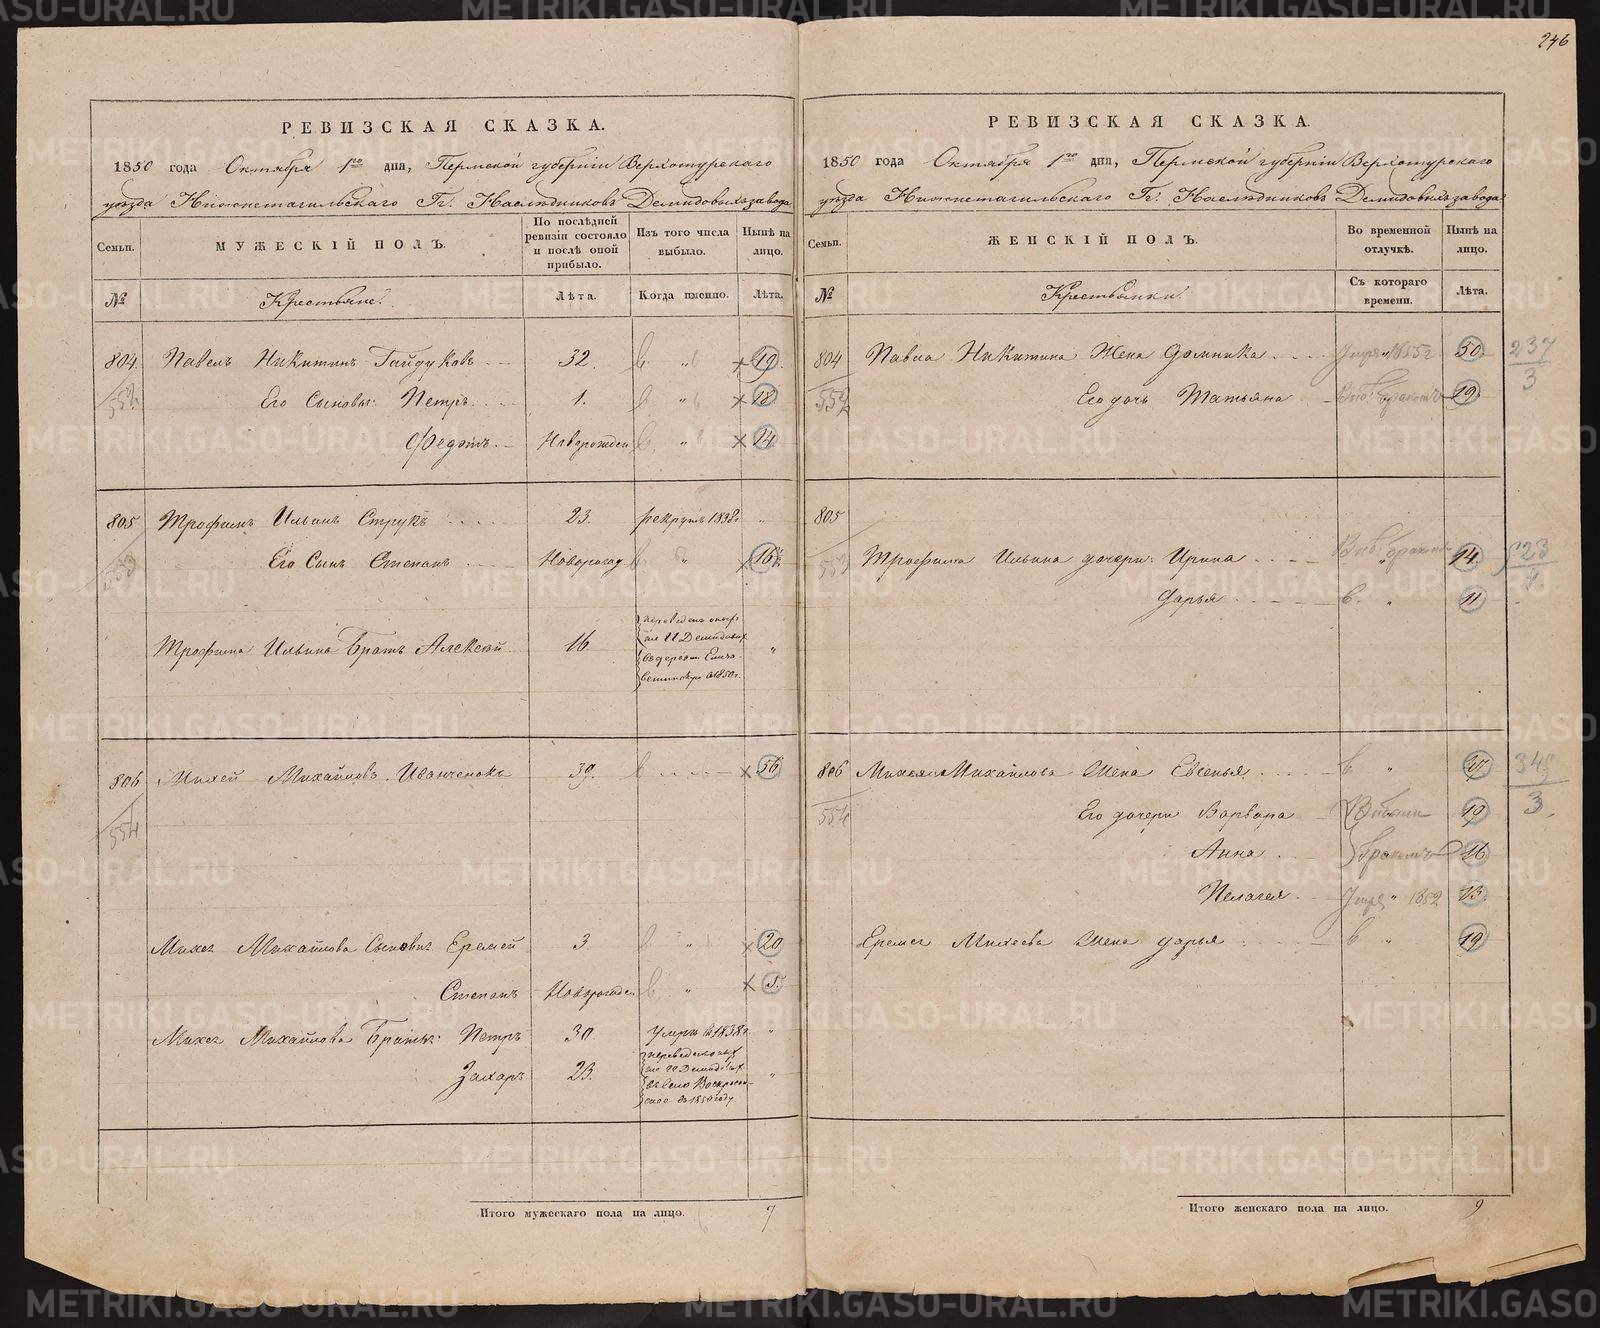 246
РЕВИЗСКАЯ СКАЗКА.
1850 года Октября 1го дня, Пермской губерніи Верхотурскаго
уѣзда Нижнетагильскаго Гг. Наслѣдниковъ Демидовыхъ завода
Семьи.
МУЖЕСКІЙ ПОЛЪ.
По послѣдней ревизіи состояло и послѣ оной прибыло.
Изъ того числа выбыло.
Нынѣ на лицо.
№
Крестьяне.
Лѣта.
Когда именно.
Лѣта.
804 Павелъ Никитинъ Гайдуковъ 32. 49.
552
Его Сыновья: Петръ 1. 18
Федотъ Новорожден 14
805 Трофимъ Ильинъ Струкъ 23. рекрутъ 1838г "
553
Его Сынъ Степанъ Новорожд 16½
Трофима Ильина Братъ Алексѣй 16 "
806 Михей Михайловъ Иванченокъ 39. 56
554
Михея Михайлова Сыновья Еремей 3 20
Степанъ Новорожден 5.
Михея Михайлова Братья: Петръ 30 Умръ в 1838г. "
Захаръ 23. "
Итого мужескаго пола на лицо. 7
РЕВИЗСКАЯ СКАЗКА.
1850 года Октября 1го дня, Пермской губерніи Верхотурскаго
уѣзда Нижнетагильскаго Гг. Наслѣдниковъ Демидовыхъ завода
Семьи.
ЖЕНСКІЙ ПОЛЪ.
Во временной отлучкѣ.
Нынѣ на лицо.
№
Крестьянки.
Съ котораго времени.
Лѣта.
804 Павла Никитина Жена Домника 1855г. 50 237
552 3
Его дочь Татьяна Выб. бракомъ 19
805
553 Трофима Ильина дочери: Ирина Выб. бракомъ 14 523
Дарья 11
806 Михея Михайлова Жена Евгенья 47 345
554 3
Его дочери Варвара 19
Анна бракомъ 16
Пелагея 1852 13
Еремея Михеева Жена Дарья 19
Итого женскаго пола на лицо. 9
METRIKI.GASO-URAL.RU